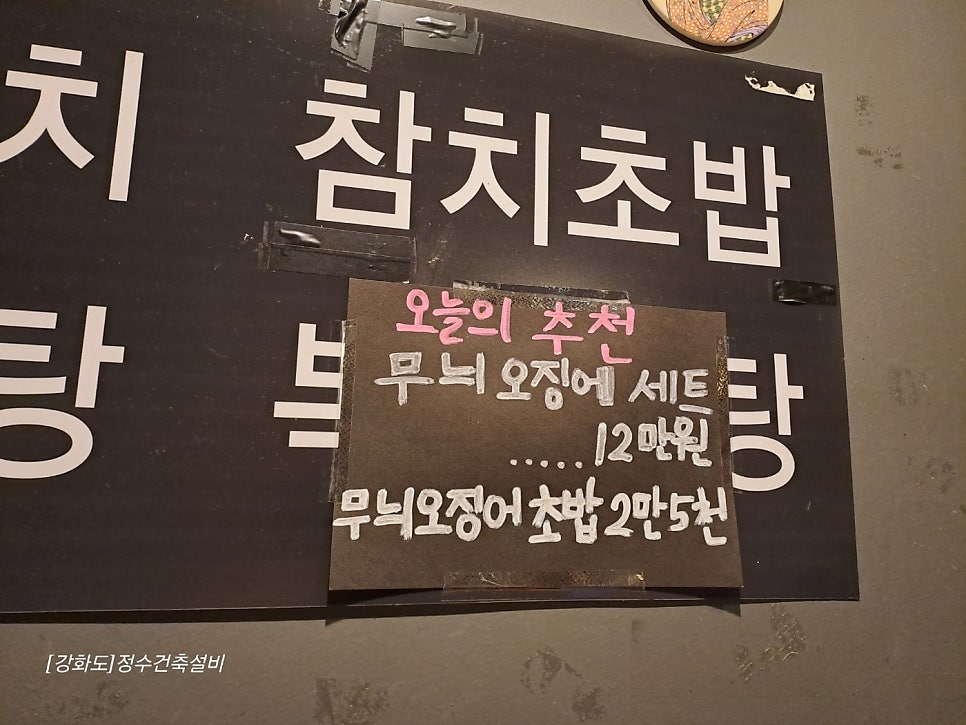 치 참치초밥
탕 탕
오늘의 추천
무늬 오징에 세트
.....12만원
무늬오징어 초밥 2만5천
[강화도]정수건축설비